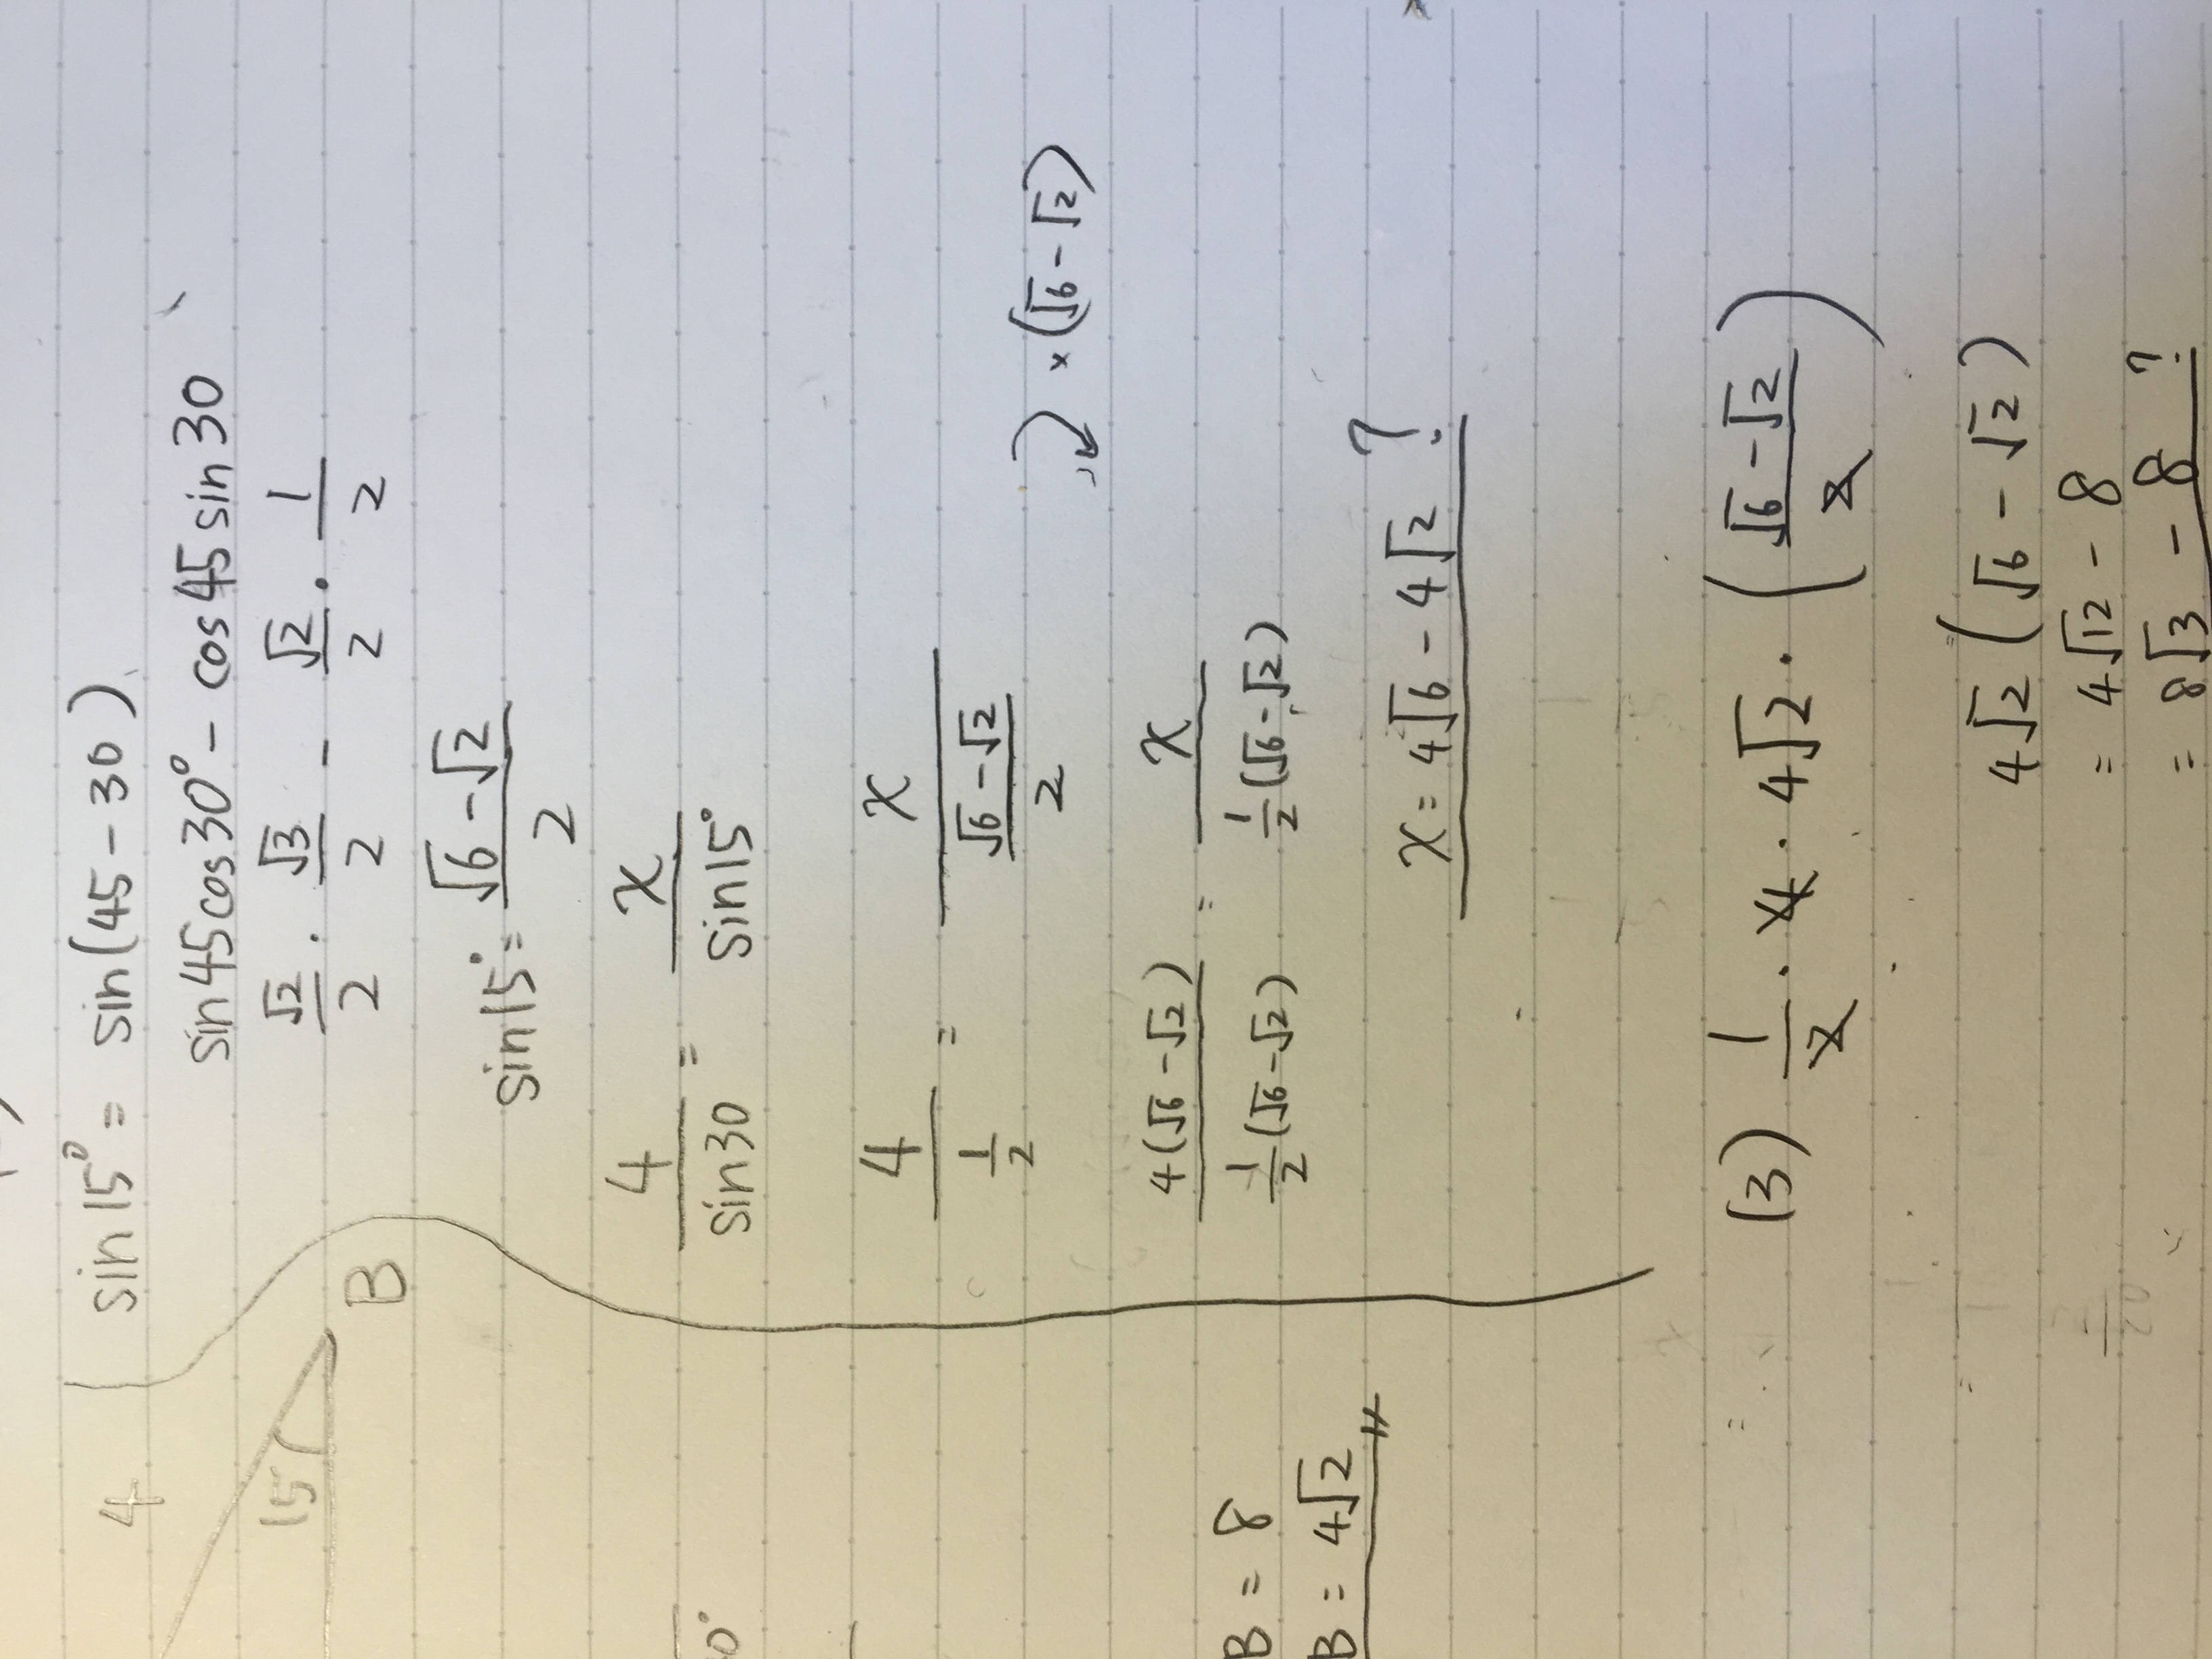 4
15
B
sin15° = sin(45-30)
sin45cos30° - cos45sin30
√2/2 · √3/2 - √2/2 · 1/2
sin15° = (√6-√2)/2
4/sin30 = x/sin15°
4/(1/2) = x/((√6-√2)/2)
×(√6-√2)
4(√6-√2)/(1/2(√6-√2)) = x/(1/2(√6-√2))
x = 4√6 - 4√2 ?
B = 8
B = 4√2
(3) 1/2 · 4 · 4√2 · ((√6-√2)/2)
4√2(√6-√2)
= 4√12 - 8
= 8√3 - 8 ?